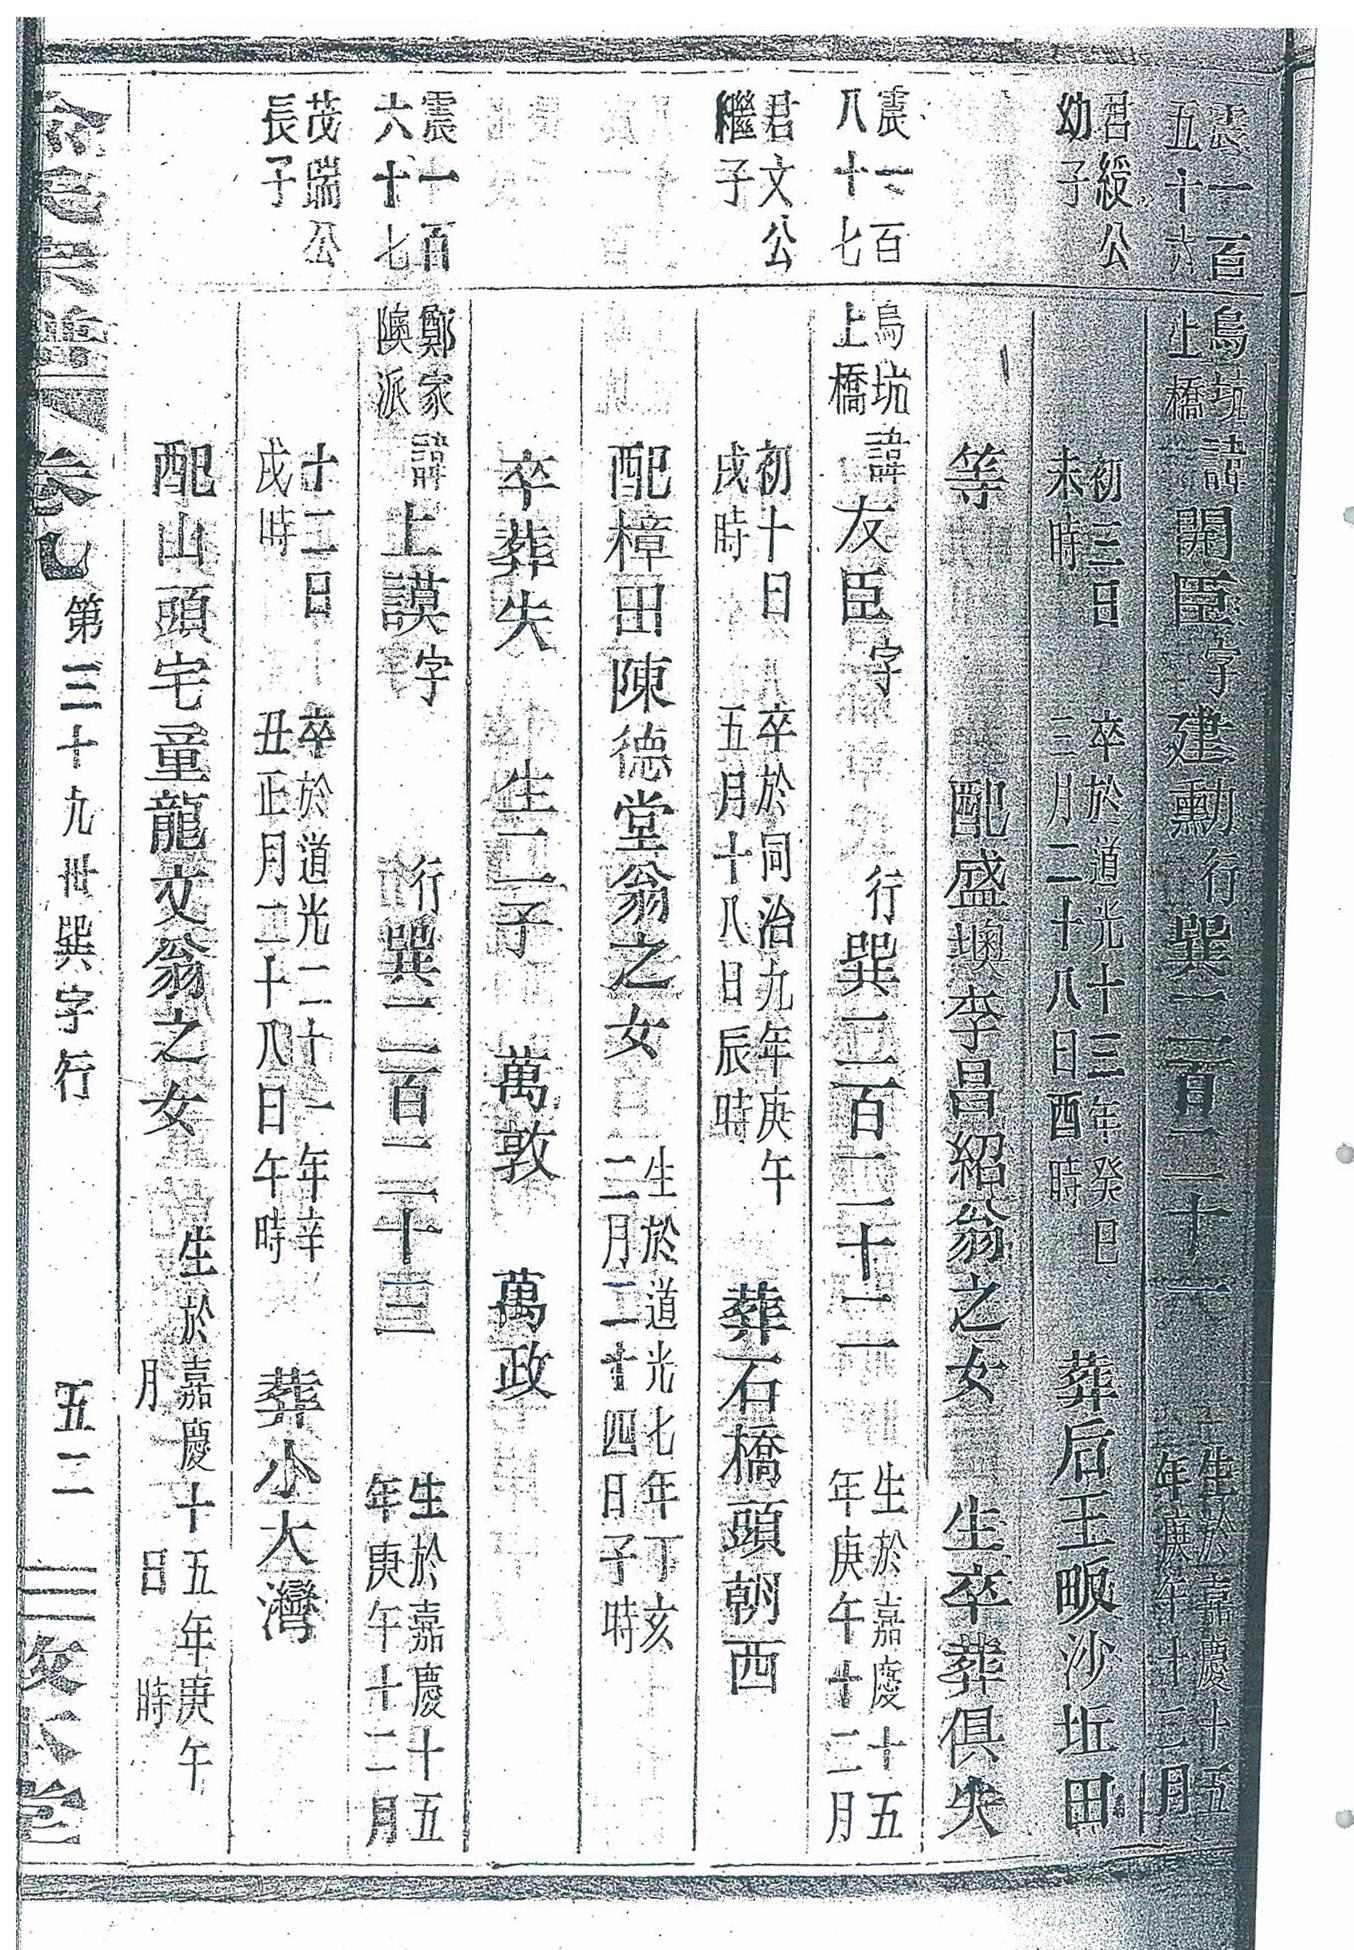 震一百
五十六
烏坑
上橋
諱開臣字建勳行巽二百二十一
生於嘉慶十五
年庚午十二月
君綬公
幼子
初三日
未時
卒於道光十三年癸巳
三月二十八日酉時
葬后王畈沙坵田
等
配盛墺李昌紹翁之女
生卒葬俱失
震一百
八十七
烏坑
上橋
諱友臣字
行巽二百二十二
生於嘉慶十五
年庚午十二月
君文公
繼子
初十日
戌時
卒於同治九年庚午
五月十八日辰時
葬石橋頭朝西
配樟田陳德堂翁之女
生於道光七年丁亥
二月二十四日子時
卒葬失
生二子
萬敦
萬政
震一百
六十七
鄭家
隩派
諱上謨字
行巽二百二十三
生於嘉慶十五
年庚午十二月
茂瑞公
長子
十二日
戌時
卒於道光二十一年辛
丑正月二十八日午時
葬小大灣
配山頭宅童龍文翁之女
生於嘉慶十五年庚午
月 日 時
宗譜 卷九 第三十九卅巽字行 五二 敦本堂